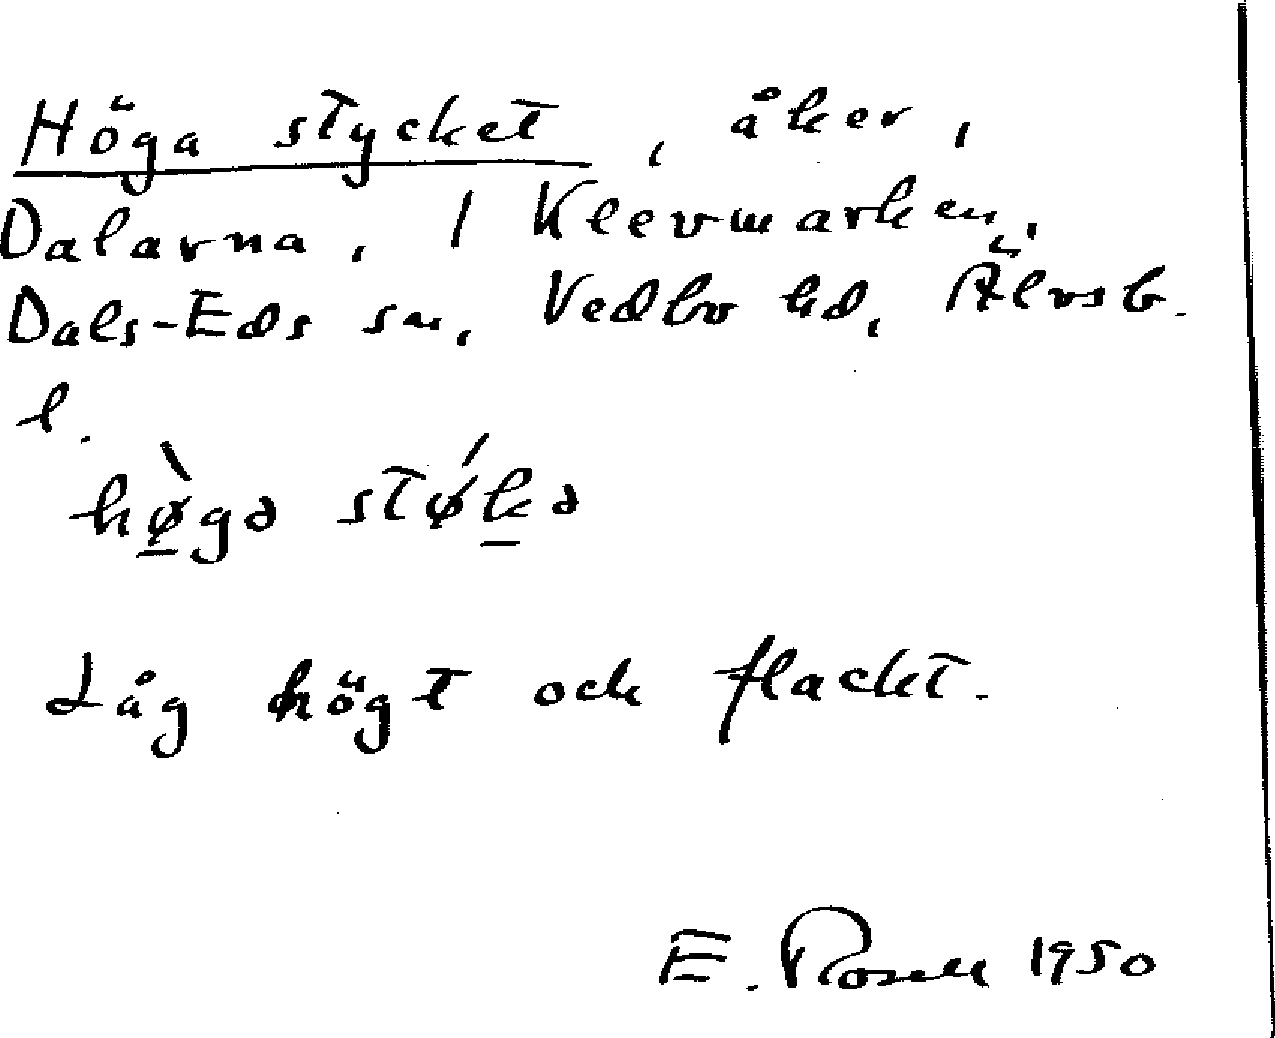 Höga stycket, åker,
Dalarna, 1 Klevmarken,
Dals-Eds sn, Vedbo hd, Älvsb.
l.
hø̲̀gə stǿk̲ə
Låg högt och flackt.
E. Rosell 1950